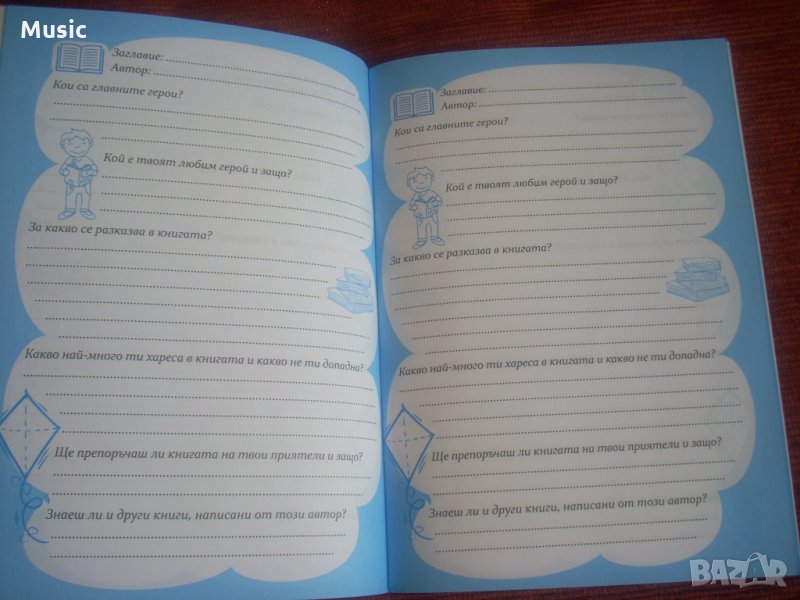 Music
Заглавие:
Автор:
Кои са главните герои?
Кой е твоят любим герой и защо?
За какво се разказва в книгата?
Какво най-много ти хареса в книгата и какво не ти допадна?
Ще препоръчаш ли книгата на твои приятели и защо?
Знаеш ли и други книги, написани от този автор?
Заглавие:
Автор:
Кои са главните герои?
Кой е твоят любим герой и защо?
За какво се разказва в книгата?
Какво най-много ти хареса в книгата и какво не ти допадна?
Ще препоръчаш ли книгата на твои приятели и защо?
Знаеш ли и други книги, написани от този автор?
BAZAR